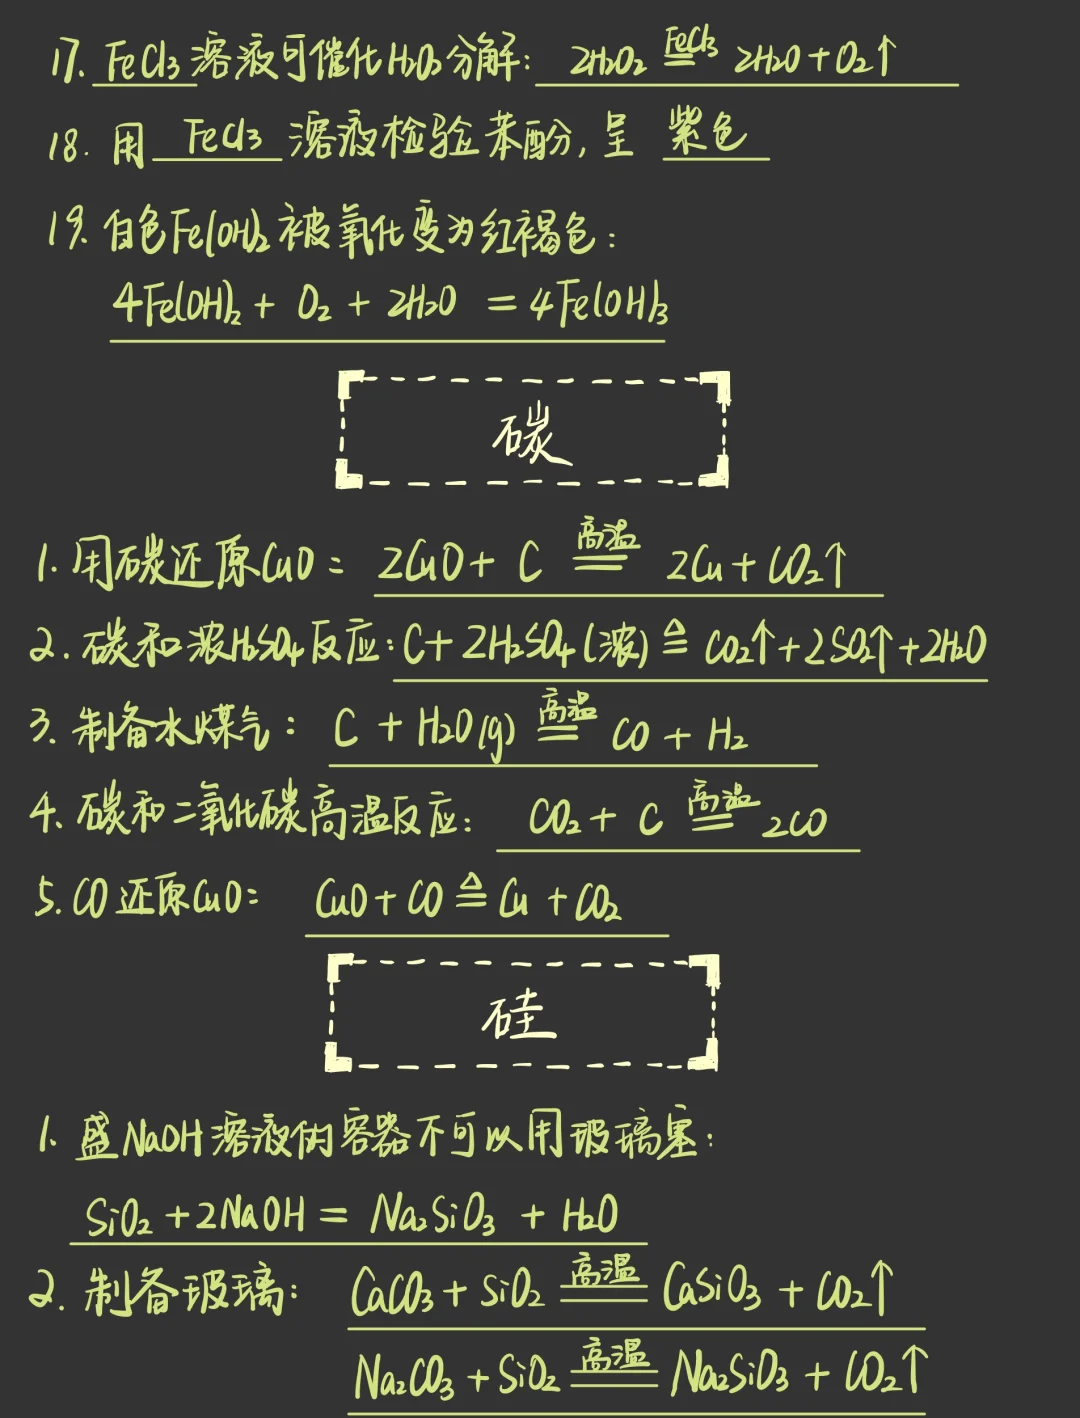 17. FeCl3 溶液可催化H2O2分解: 2H2O2 FeCl3 == 2H2O+O2↑
18. 用 FeCl3 溶液检验苯酚, 呈 紫色
19. 白色Fe(OH)2被氧化变为红褐色:
4Fe(OH)2 + O2 + 2H2O = 4Fe(OH)3
碳
1. 用碳还原CuO: 2CuO+ C 高温 == 2Cu+CO2↑
2. 碳和浓H2SO4反应: C+2H2SO4(浓) △ == CO2↑+2SO2↑+2H2O
3. 制备水煤气: C + H2O(g) 高温 == CO + H2
4. 碳和二氧化碳高温反应: CO2+ C 高温 == 2CO
5. CO还原CuO: CuO+CO △ == Cu +CO2
硅
1. 盛NaOH溶液的容器不可以用玻璃塞:
SiO2+2NaOH = Na2SiO3 + H2O
2. 制备玻璃: CaCO3+SiO2 高温 == CaSiO3 + CO2↑
Na2CO3+SiO2 高温 == Na2SiO3 + CO2↑